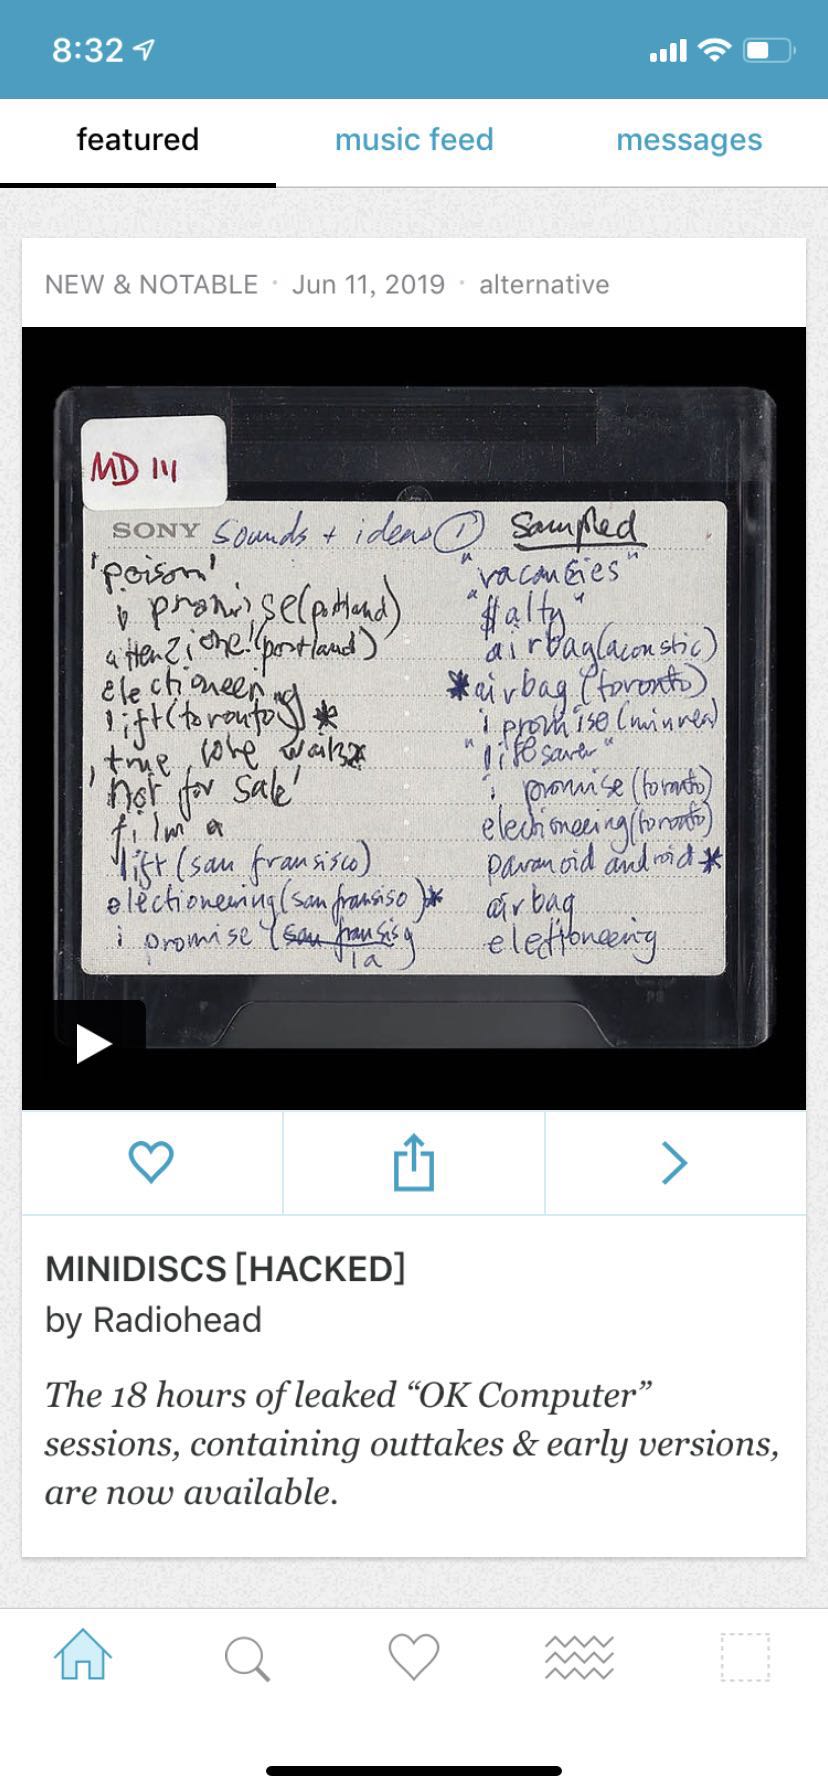 8:32
featured music feed messages
NEW & NOTABLE · Jun 11, 2019 · alternative
MD 111
SONY Sounds + ideas ① Sampled
'poison'
i promise (portland)
attenzione! (portland)
electioneering
lift (toronto) *
true love waits *
'not for sale'
film a
lift (san fransisco)
electioneering (san fransiso) *
i promise (san fransis
la
"vacancies"
"$alty"
airbag (acoustic)
*airbag (toronto)
i promise (minnea)
"lifesaver"
i promise (toronto)
electioneering (toronto)
paranoid android *
airbag
electioneering
MINIDISCS [HACKED]
by Radiohead
The 18 hours of leaked “OK Computer”
sessions, containing outtakes & early versions,
are now available.